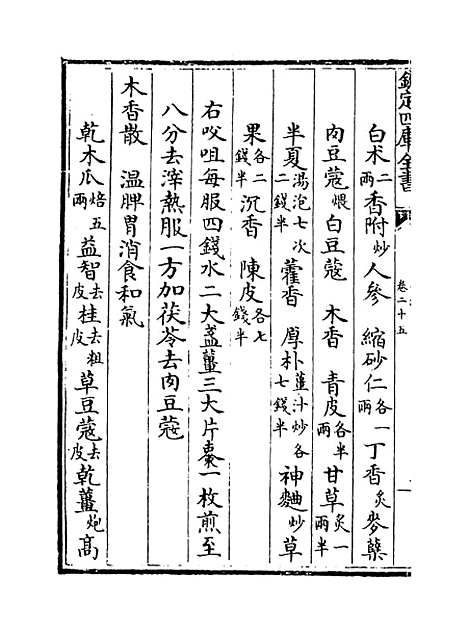 欽定四庫全書
卷二十五
白朮二兩香附炒人參　縮砂仁各一兩丁香炙麥櫱
肉豆蔻煨白豆蔻　木香　青皮各半兩甘草炙一兩半
半夏湯泡七次二錢半藿香　厚朴薑汁炒各七錢半神麯炒草
果各二錢半沉香　陳皮各七錢半
右㕮咀每服四錢水二大盞薑三大片棗一枚煎至
八分去滓熱服一方加茯苓去肉豆蔻
木香散　溫脾胃消食和氣
乾木瓜焙五兩益智去皮桂去粗皮草豆蔻去皮乾薑炮高